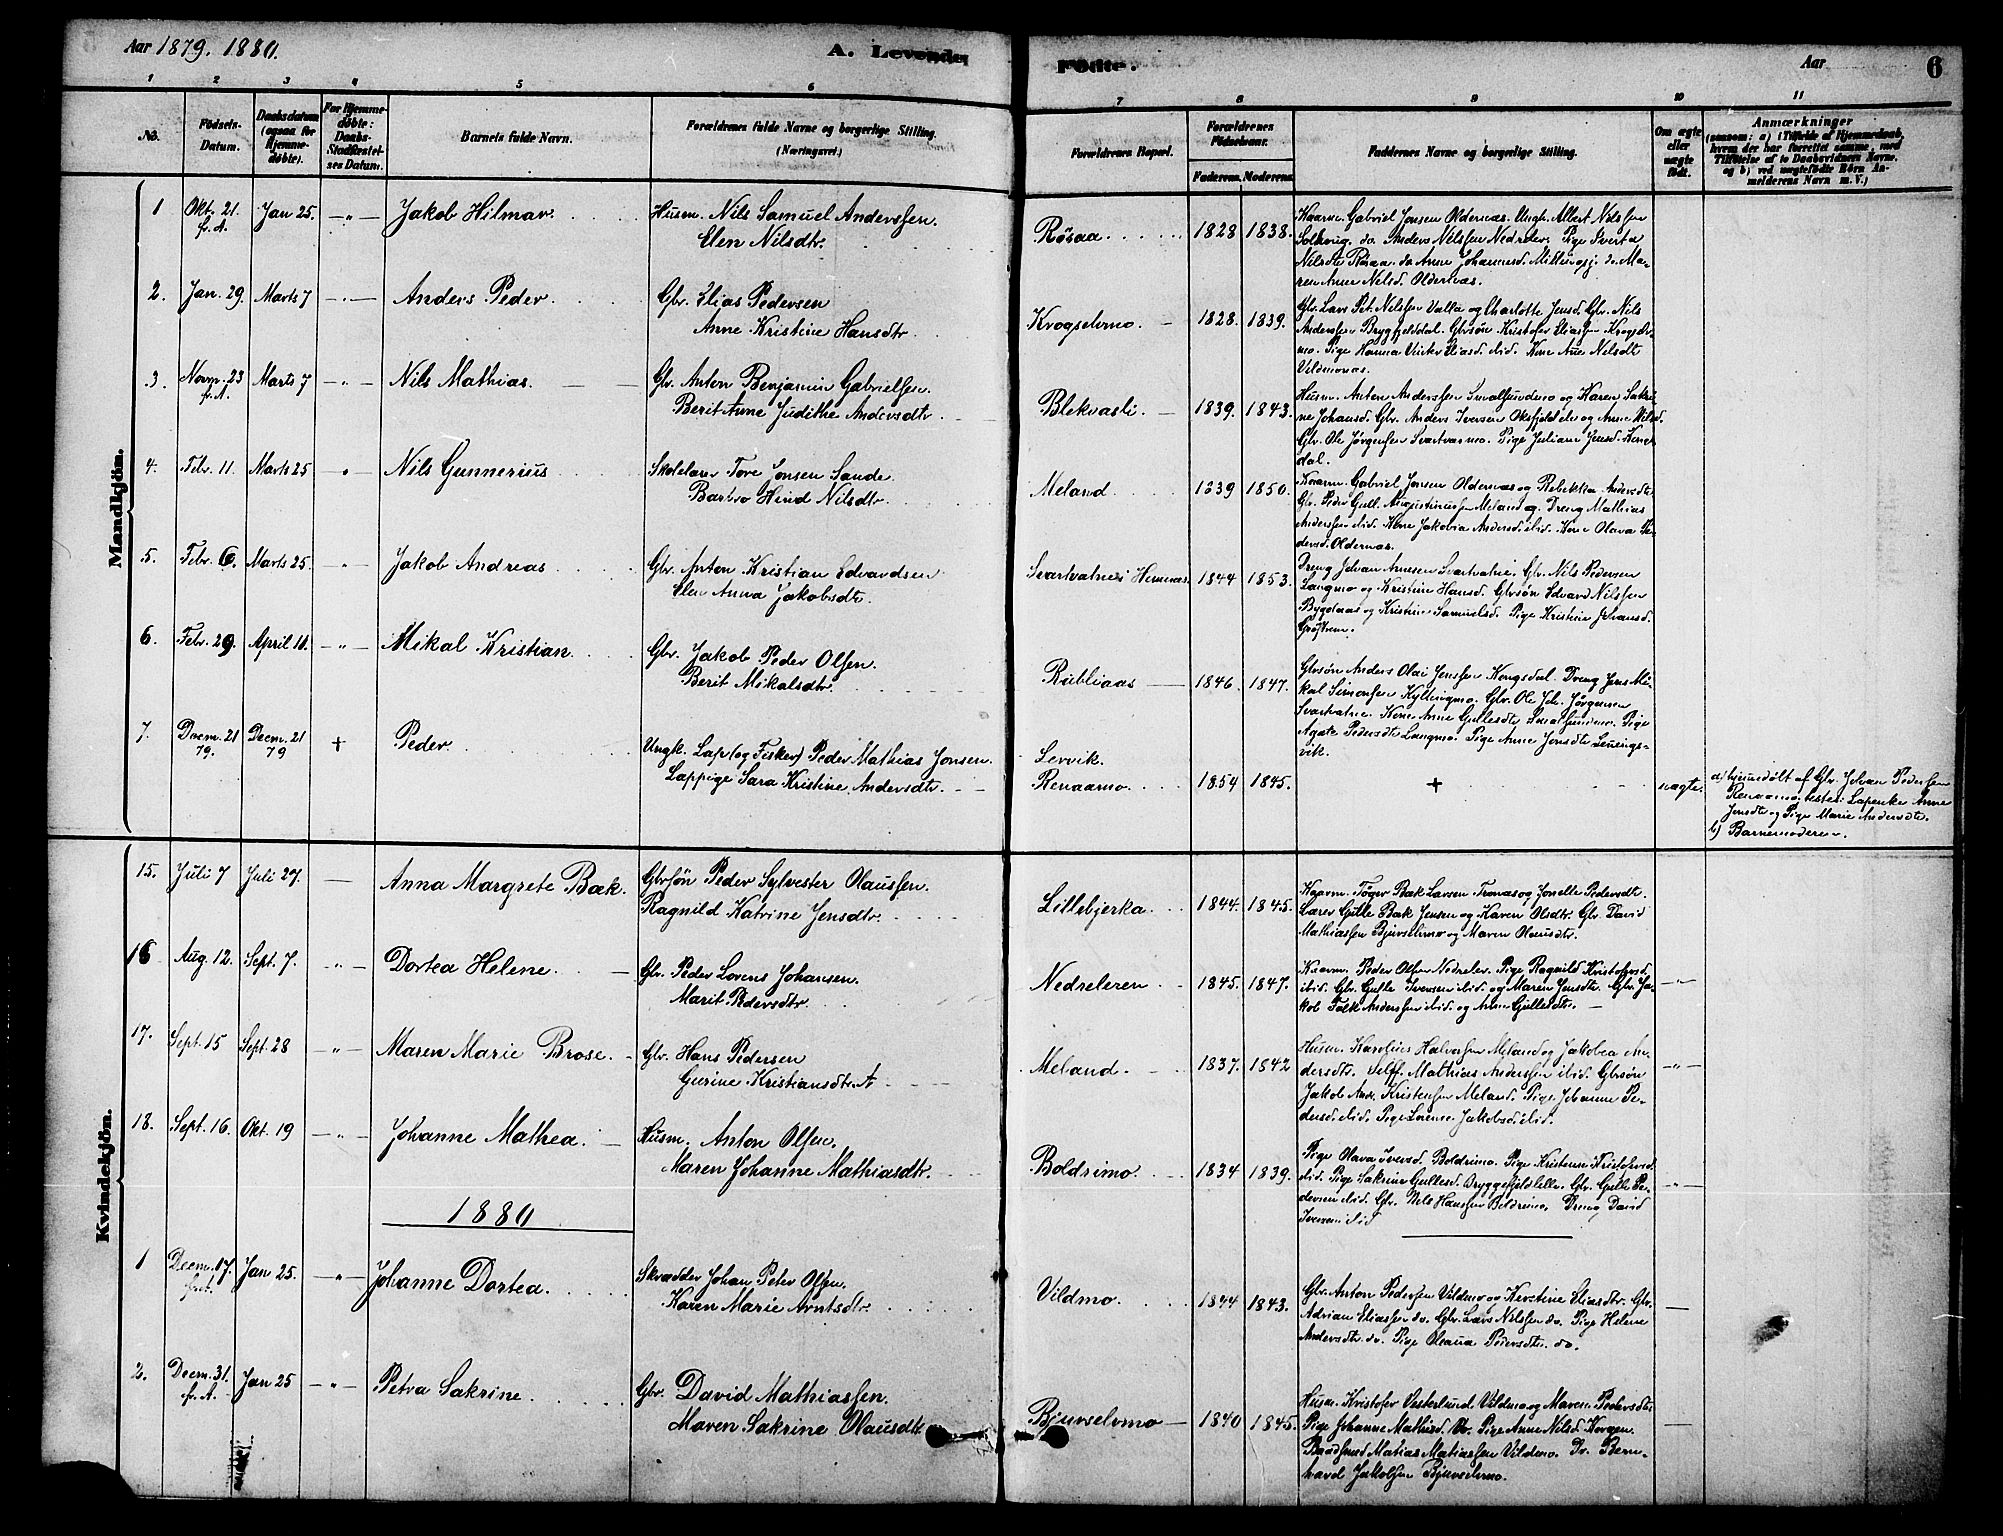 Aar 1879. 1880.
A. Levende
Fødte.
Aar
6
1 2 3 4 5 6 7 8 9 10 11
No.
Fødsels-
Datum.
Daabsdatum
(ogsaa for
Hjemme-
døbte).
For Hjemme-
døbte:
Daabs-
Stadfæstel-
ses Datum.
Barnets fulde Navn.
Forældrenes fulde Navne og borgerlige Stilling.
(Næringsvei.)
Forældrenes Bopæl.
Forældrenes
Fødselsaar.
Faderens. Moderens.
Faddernes Navne og borgerlige Stilling.
Om ægte
eller
uægte
født.
Anmærkninger
(saasom: a) i Tilfælde af Hjemmedaab,
hvem der har forrettet samme, med
Tilføielse af to Daabsvidners Navne.
og b) ved uægtefødte Børn An-
melderens Navn m. V.)
Mandkjøn.
1 Okt. 21. f. A. Jan 25. - „ - Jakob Hilmar
Husm. Nils Samuel Anderssen.
Elen Nilsdtr.
Røsaa. 1828 1838.
Kaarm. Gabriel Jensen Oldernæs. Ungk. Albert Nilssen
Nilsdtr Røsaa. do Anne Johannesd.
ren Anne Nilsd. Oldernæs.
2. Jan. 29. Marts 7 - „ - Anders Peder
Gbr. Elias Pedersen
Anne Kristine Hansdtr
Krogselvmo. 1828. 1839.
Gbr. Lars Pet. Nilssen Valla og Charlotte Jensd. Gbr. Nils
Anderssen Bryggfjelddal. Gbrsøn Kristofer Eliassen
mo. Pige Hanna Eliasd. ibid. Kone Ane Nilsdt
Vildmonæs.
3. Novm. 23 f. A. Marts 7 - „ - Nils Mathias.
Gbr. Anton Benjamin Gabrielsen.
Berit Anne Judithe Andersdtr.
Blekvasli. 1839. 1843.
Husm. Anton Anderssen Smalsundmo og Karen Sakri-
ne Johansd. Gbr. Anders Iversen Oksfjeldele og Anne Nilsd.
Gbr. Ole Jørgensen Svartvasmo. Pige Juliane Jensd.
dal.
4. Febr. 11. Marts 25 „ Nils Gunnerius
Skolelærer Tore Jonsen Sande
Barbro Hend Nilsdtr
Meland. 1839 1850.
Kaarm. Gabriel Jensen Oldernæs og Rebekka Andersdtr.
Gbr. Peder Gull. Augustinussen Meland og Dreng Mathias
Anderssen ibid. Kone Jakobia Andersd. ibid. Kone Olava Pe-
dersd. Oldernæs.
5. Febr. 6. Marts 25. „ Jakob Andreas
Gbr. Anton Kristian Edvardsen
Elen Anna Jakobsdtr.
1844 1853.
Dreng Johan Arnesen Svartvatne. Gbr. Nils Pedersen
Langmo og Kristine Hansd. Gbrsøn Edvard Nilssen
Bygdaas og Kristine Samuelsd. Pige Kristine Johansd.
6. Febr. 29. April 11. - „ - Mikal Kristian
Gbr. Jakob Peder Olsen.
Berit Mikalsdtr.
Rabliaas 1846. 1847.
Gbrsøn Anders Olai Jenssen Kongsdal. Dreng Jens Mi-
kal Simonsen Kyllingmo. Gbr. Ole Joh. Jørgensen
Svartvatne. Kone Anne Gullesdtr Smalsundmo. Pige
Agate Pedersdtr Langmo. Pige Anne Jonsdtr
vik.
7. Decm. 21 79. Decm. 21 79 + Peder.
Ungk. Lap (og Fisker) Peder Mathias Jonsen.
Lappige Sara Kristine Andersdtr.
Levvik.
Renaamo. 1854 1845. + uægte.
a) hjemdøbt af Gbr. Johan Pedersen
Renaamo, testes: Lapenke Anne
Jensdtr og Pige Marie Andersdtr.
b) Barnemoderen.
Kvindekjøn.
15. Juli 7 Juli 27. — Anna Margrete Bæk.
Gbrsøn Peder Sylvester Olaussen.
Ragnild Katrine Jensdtr.
Lillebjerka. 1844. 1845.
Kaarm. Tøger Bæk Larsen Tronæs og Jonelle Pedersdtr.
Lærer Gulle Bæk Jensen og Karen Olsdtr. Gbr. David
Mathiassen Bjurselvmo og Maren Olausdtr.
16 Aug. 12. Sept. 7. „ Dortea Helene.
Gbr. Peder Lorens Johansen.
Marit Pedersdtr.
Nedreleren 1845. 1847.
Kaarm. Peder Olsen Nedreler. Pige Ragnild Kristofersd.
ibid. Gbr. Gulle Iversen ibid. og Maren Jensdtr. Gbr. Ja-
kob Falk Anderssen ibid. og Anne Gullesdtr. - „ -
17. Sept. 15 Sept. 28 - „ - Maren Marie Brose.
Gbr. Hans Pedersen
Gurine Kristiansdtr. †
Meland. 1837. 1842
Husm. Karolius Halvorsen Meland og Jakobea An-
dersdtr. Mathias Anderssen ibid. Gbrsøn
Jakob And. Kristensen Meland. Pige Johanne Pe-
dersd. ibid. Pige Lorense Jakobsd. ibid. - „ -
18. Sept. 16. Okt. 19 - „ - Johanne Mathea.
Husm. Anton Olsen.
Maren Johanne Mathiasdtr.
Boldrimo. 1834 1839.
Pige Olava Iversd. Boldrimo. Pige Kristense Kristofersd.
ibid. Pige Sakrine Gullesd. Bryggefjeldlille. Gbr. Gulle Pe-
dersen ibid. Gbr. Nils Hanssen Boldrimo. Dreng David
Iversen ibid - „ -
1880
1 Decm. 17. Jan 25. - „ - Johanne Dortea.
Skrædder Johan Peter Olsen.
Karen Marie Arntsdtr.
Vildmo. 1844 1843.
Gbr. Anton Pedersen Vildmo og Kerstine Eliasdtr. Gbr.
Adrian Eliassen do. Gbr. Lars Nilssen do. Pige Helene
Andersdtr. do. Pige Oleana Pedersdtr. do. —
2. Decm. 31. f. A. Jan 25 - „ - Petra Sakrine
Gbr. David Mathiassen.
Maren Sakrine Olausdtr.
Bjurselvmo 1840 1845.
Husm. Kristofer Vesterlund Vildmo og Maren Pedersdtr
Pige Johanne Mathisd. do. Pige Anne Nilsd. Korgen.
Baadsmd Matias Matiassen Vildmo. Dr. Bern-
hard Jakobsen Bjurselvmo. —